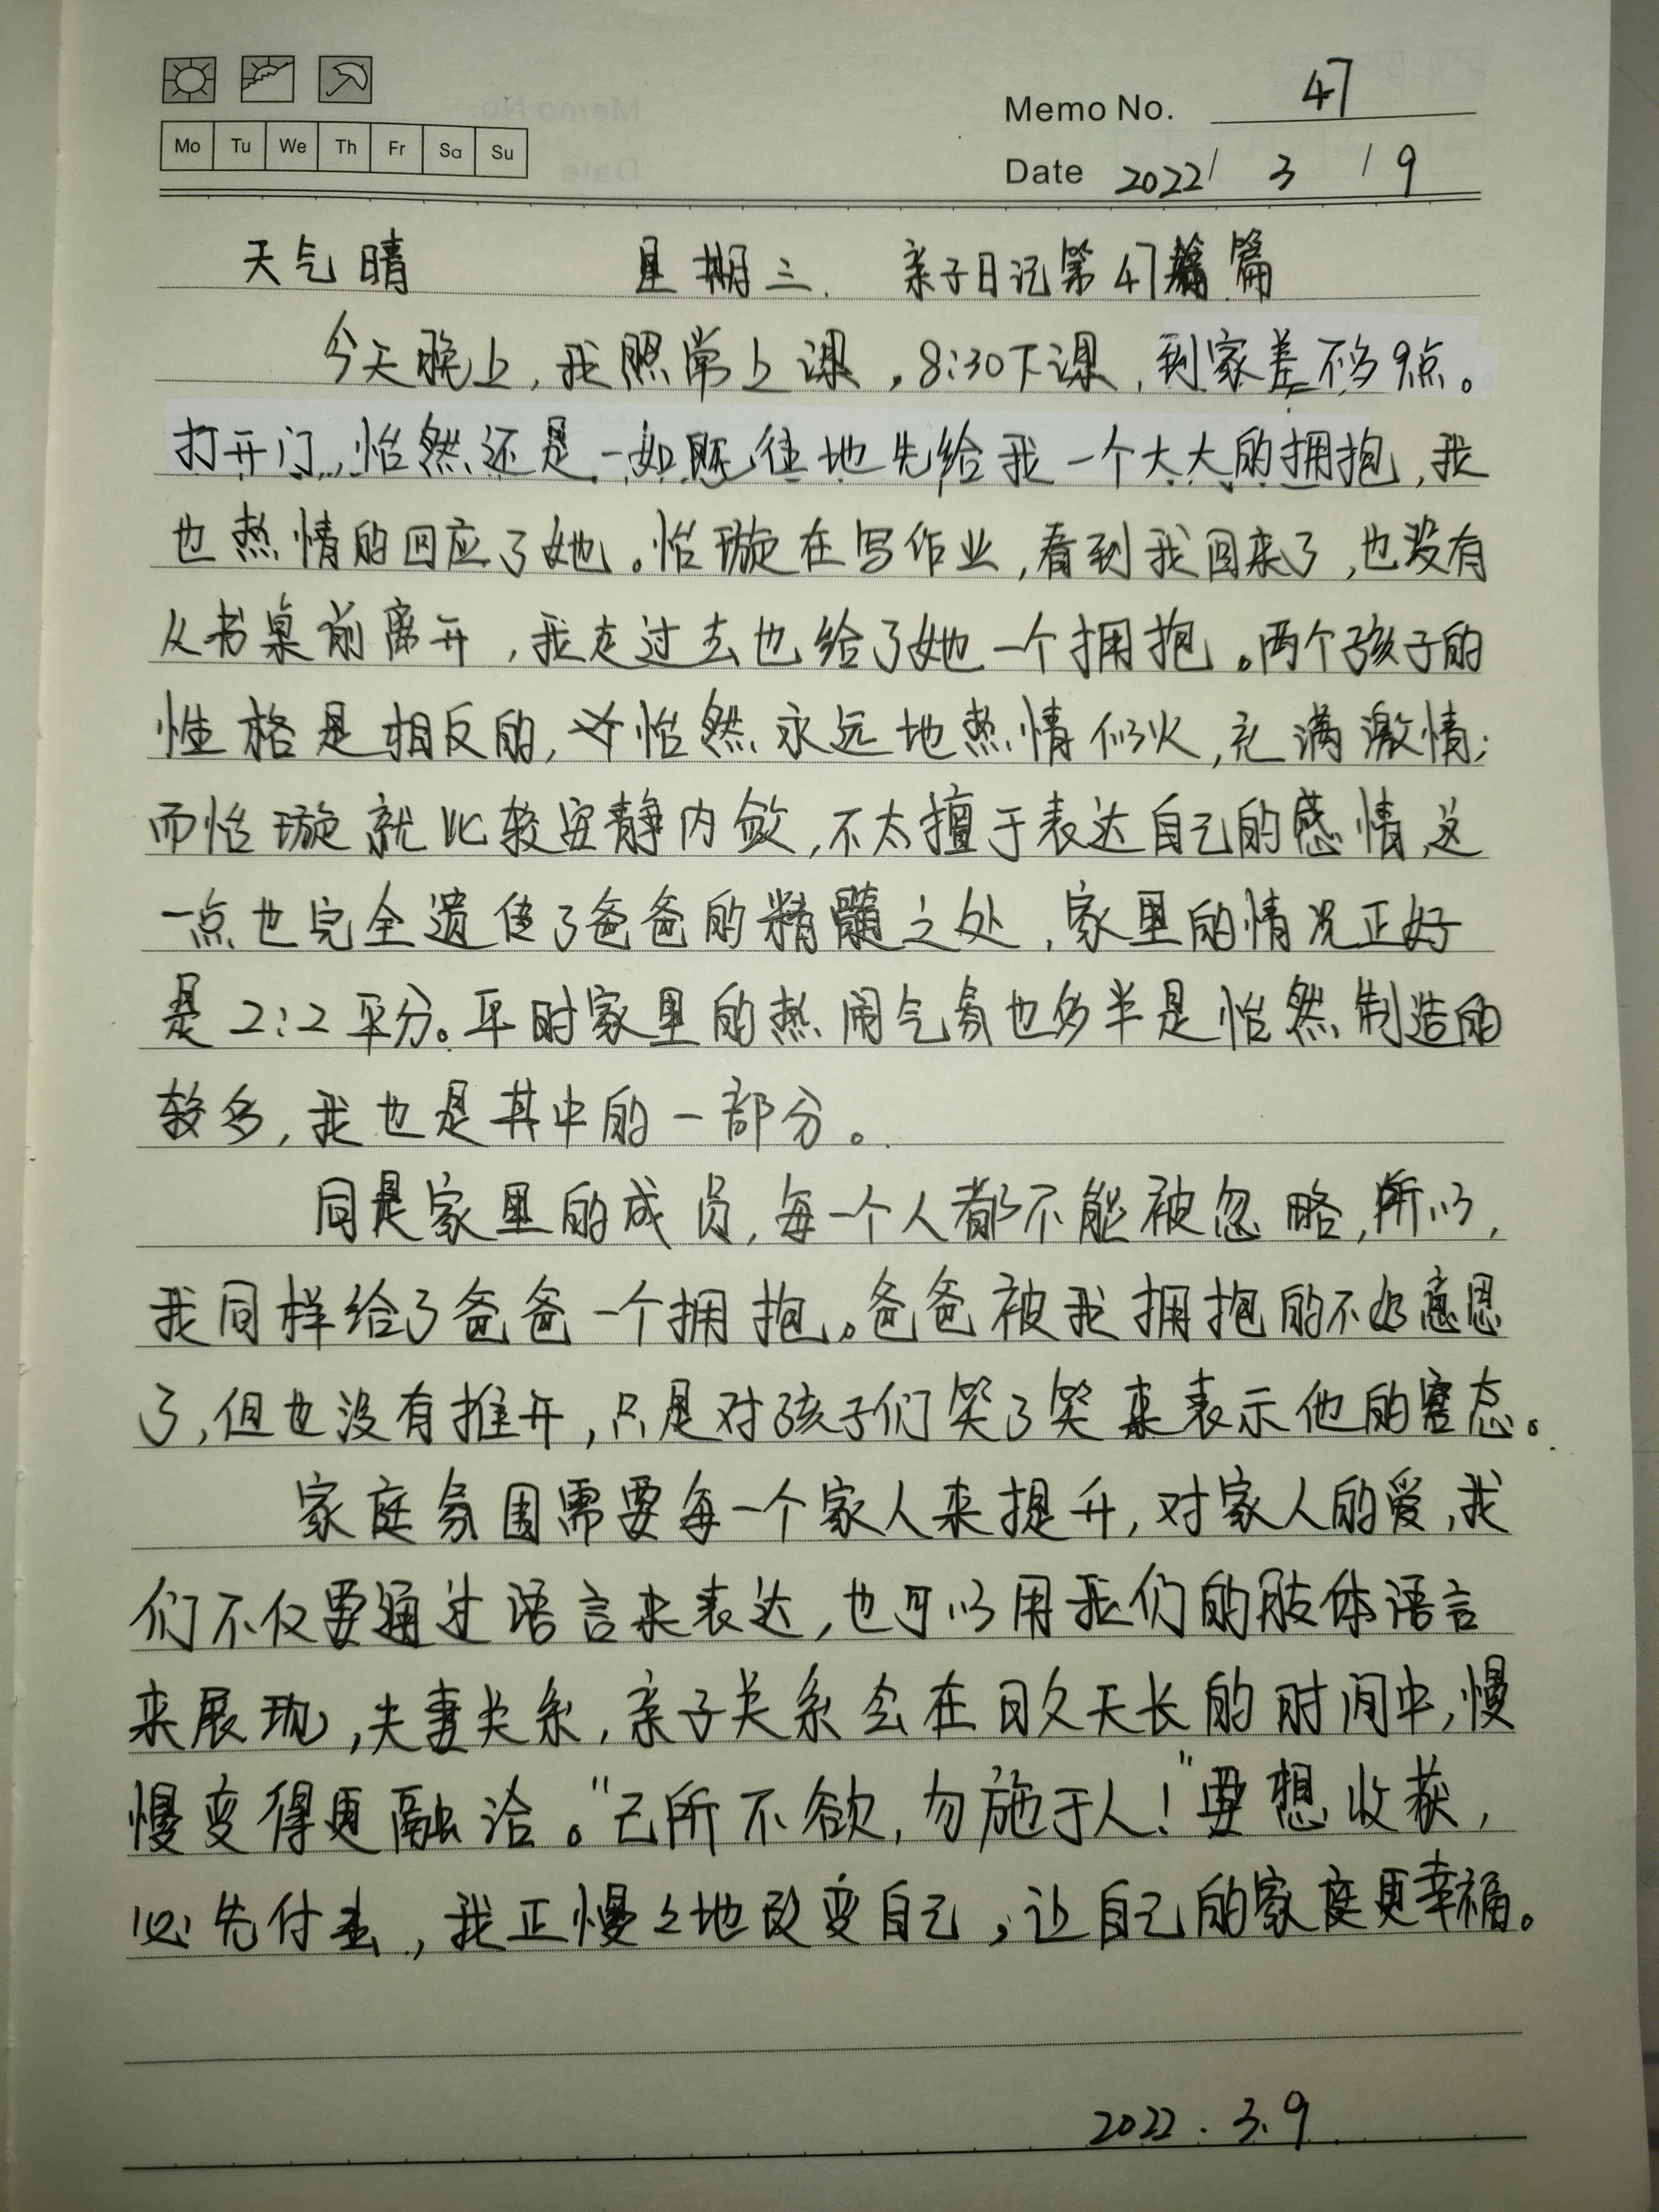 Memo No. 47
Mo Tu We Th Fr Sa Su
Date 2022/ 3 / 9
天气晴 星期三. 亲子日记第47篇
今天晚上,我照常上课,8:30下课,到家差不多9点。
打开门,怡然还是一如既往地先给我一个大大的拥抱,我
也热情的回应了她。怡璇在写作业,看到我回来了,也没有
从书桌前离开,我走过去也给了她一个拥抱。两个孩子的
性格是相反的,怡然永远地热情似火,充满激情;
而怡璇就比较安静内敛,不太擅于表达自己的感情,这
一点也完全遗传了爸爸的精髓之处,家里的情况正好
是2:2平分。平时家里的热闹气氛也多半是怡然制造的
较多,我也是其中的一部分。
同是家里的成员,每一个人都不能被忽略,所以,
我同样给了爸爸一个拥抱。爸爸被我拥抱的不好意思
了,但也没有推开,只是对孩子们笑了笑来表示他的窘态。
家庭氛围需要每一个家人来提升,对家人的爱,我
们不仅要通过语言来表达,也可以用我们的肢体语言
来展现,夫妻关系,亲子关系会在日久天长的时间中,慢
慢变得更融洽。"己所不欲,勿施于人!"要想收获,
必先付出,我正慢々地改变自己,让自己的家庭更幸福。
2022.3.9